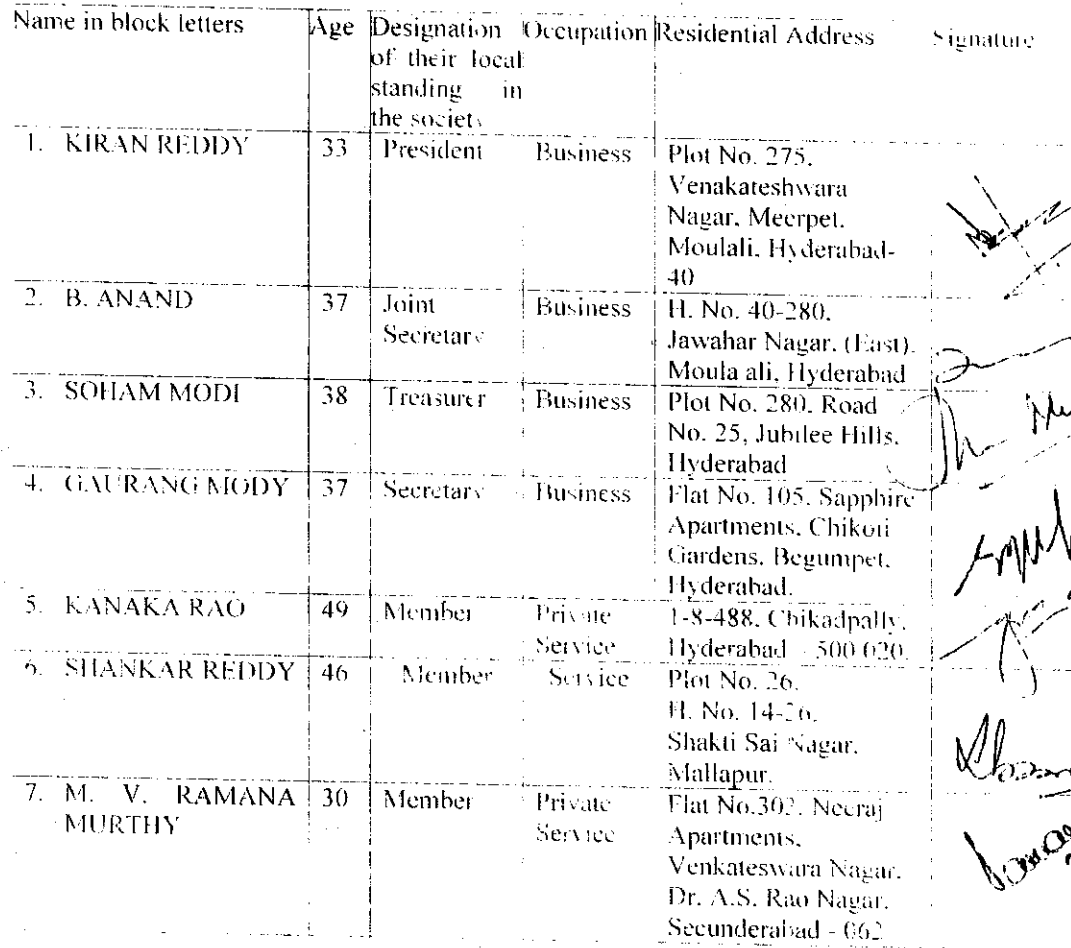 Name in block letters Age Designation Occupation Residential Address Signature
of their local
standing in
the society
1. KIRAN REDDY 33 President Business Plot No. 275,
Venakateshwara
Nagar, Meerpet,
Moulali, Hyderabad-
40
2. B. ANAND 37 Joint Business H. No. 40-280,
Secretary Jawahar Nagar, (East),
Moula ali, Hyderabad
3. SOHAM MODI 38 Treasurer Business Plot No. 280, Road
No. 25, Jubilee Hills,
Hyderabad
4. GAURANG MODY 37 Secretary Business Flat No. 105, Sapphire
Apartments, Chikoti
Gardens, Begumpet,
Hyderabad.
5. KANAKA RAO 49 Member Private 1-8-488, Chikadpally,
Service Hyderabad - 500 020.
6. SHANKAR REDDY 46 Member Service Plot No. 26,
H. No. 14-26,
Shakti Sai Nagar,
Mallapur.
7. M. V. RAMANA 30 Member Private Flat No.302, Neeraj
MURTHY Service Apartments,
Venkateswara Nagar,
Dr. A.S. Rao Nagar,
Secunderabad - 062